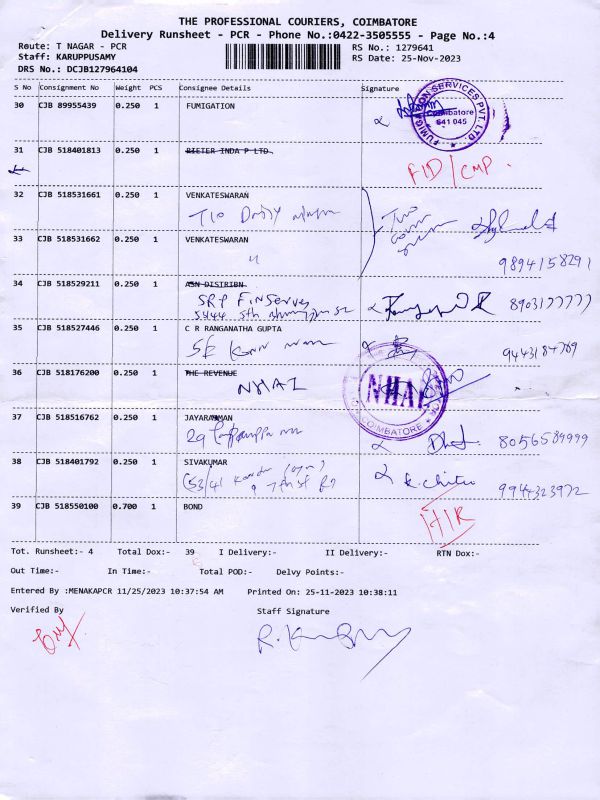 THE PROFESSIONAL COURIERS, COIMBATORE
Delivery Runsheet - PCR - Phone No.:0422-3505555 - Page No.:4
Route: T NAGAR - PCR RS No.: 1279641
Staff: KARUPPUSAMY RS Date: 25-Nov-2023
DRS No.: DCJB127964104
S No Consignment No Weight PCS Consignee Details Signature
30 CJB 89955439 0.250 1 FUMIGATION
FUMIGATION SERVICES PVT. LTD.
Coimbatore
641 045
31 CJB 518401813 0.250 1 RIETER INDA P LTD.
FID/CMP.
32 CJB 518531661 0.250 1 VENKATESWARAN
T10 Daily
33 CJB 518531662 0.250 1 VENKATESWARAN
9894158291
34 CJB 518529211 0.250 1 ASN DISTRIBN.
SRP Finserve
8903177777
35 CJB 518527446 0.250 1 C R RANGANATHA GUPTA
9443184769
36 CJB 518176200 0.250 1 THE REVENUE
NHAI
NHAI
COIMBATORE
37 CJB 518516762 0.250 1 JAYARAMAN
29
8056589999
38 CJB 518401792 0.250 1 SIVAKUMAR
K. Chitra
9944323972
39 CJB 518550100 0.700 1 BOND
Tot. Runsheet:- 4 Total Dox:- 39 I Delivery:- II Delivery:- RTN Dox:-
Out Time:- In Time:- Total POD:- Delvy Points:-
Entered By :MENAKAPCR 11/25/2023 10:37:54 AM Printed On: 25-11-2023 10:38:11
Verified By Staff Signature